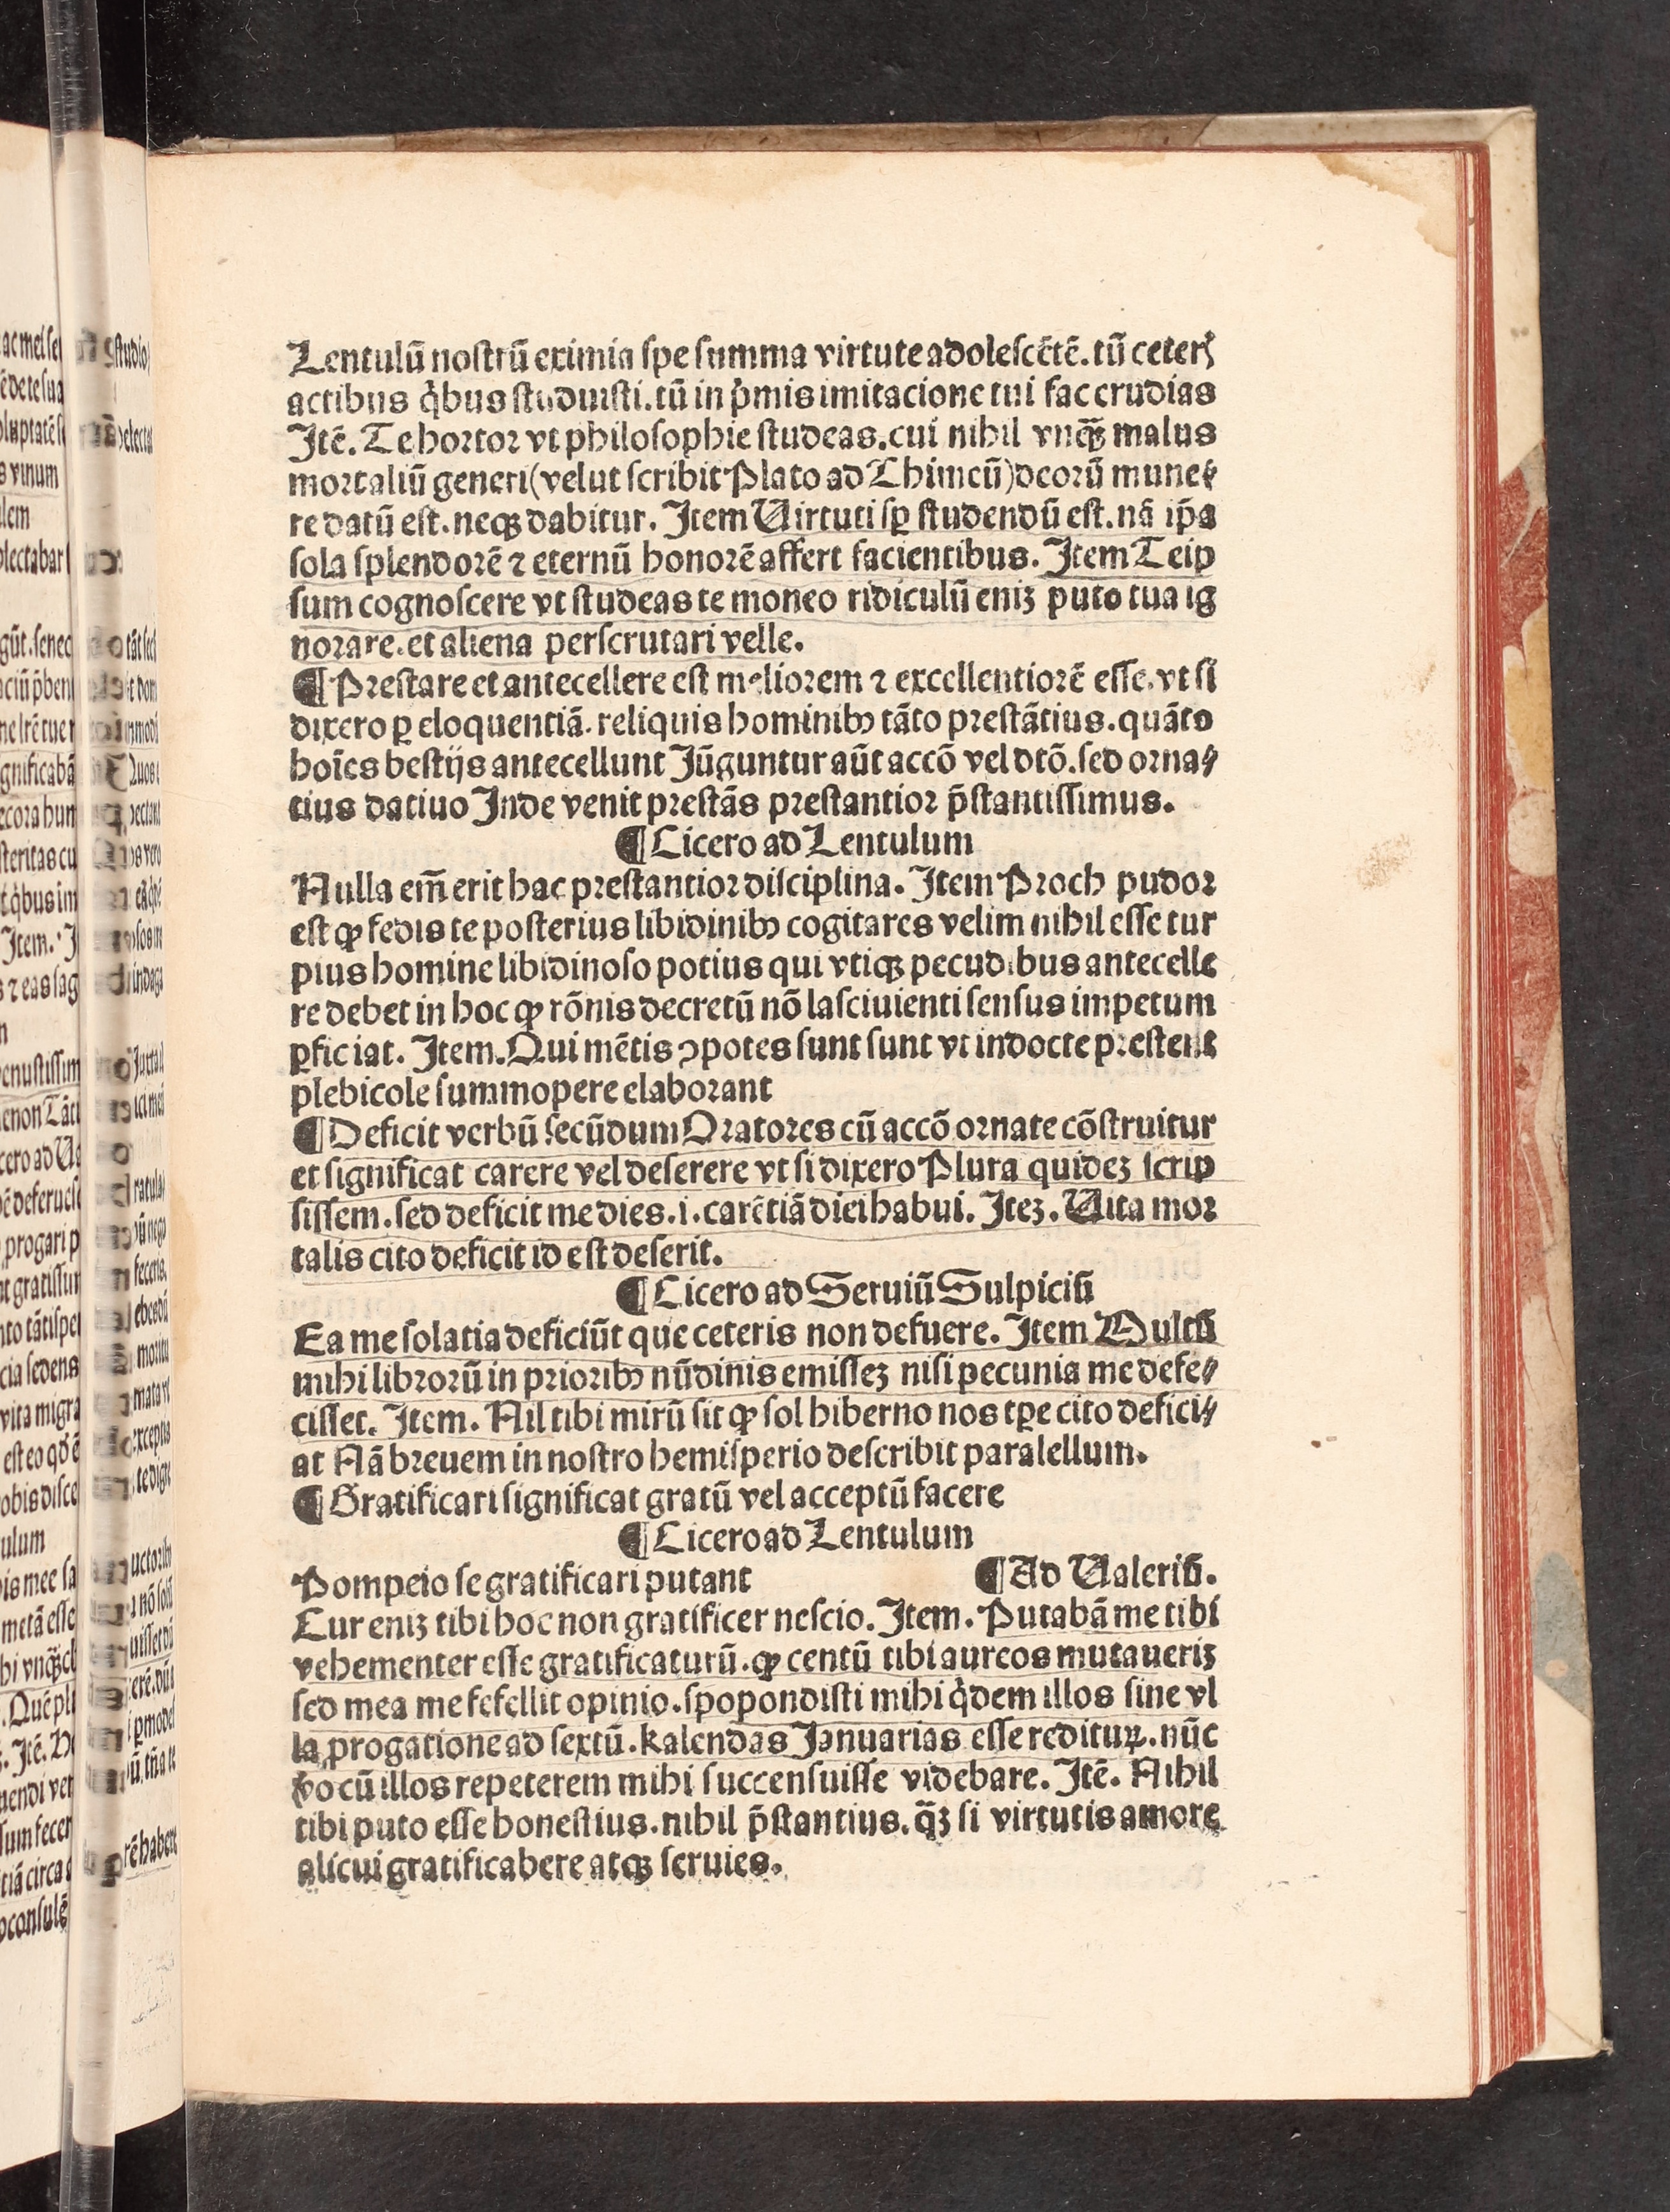 Lentulū noſtrū eximia ſpe ſumma virtute adoleſcētē. tū ceterꝭ
actibus q̇bus ſtuduiſti. tū in p̍mis imitacione tui fac erudias
Jtē. Te hortor vt philoſophie ſtudeas. cui nihil vnqꝫ̄ malus
mortaliū generi (velut ſcribit Plato ad Thimeū) deorū mune⸗
re datū eſt. neqꝫ dabitur. Jtem Uirtuti ſꝑ ſtudendū eſt. nā ip̄a
ſola ſplendorē ⁊ eternū honorē affert facientibus. Jtem Teip
ſum cognoſcere vt ſtudeas te moneo ridiculū eniꝫ puto tua ig
norare. et aliena perſcrutari velle.
¶ Preſtare et antecellere eſt meliorem ⁊ excellentiorē eſſe. vt ſi
dixero ꝑ eloquentiā. reliquis hominibꝰ tāto preſtātius. quāto
hoīes beſtijs antecellunt Jūguntur aūt accō vel dtō. ſed orna⸗
tius datiuo Jnde venit preſtās preſtantior p̄ſtantiſſimus.
¶ Cicero ad Lentulum
Nulla em̄ erit hac preſtantior diſciplina. Jtem Proch pudor
eſt ꝙ fedis te poſterius libidinibꝰ cogitares velim nihil eſſe tur
pius homine libidinoſo potius qui vtiqꝫ pecudibus antecelle
re debet in hoc ꝙ rōnis decretū nō laſciuienti ſenſus impetum
ꝑficiat. Jtem. Qui mētis ꝯpotes ſunt ſunt vt indocte preſtent
plebicole ſummopere elaborant
¶ Deficit verbū ſecūdum Oratores cū accō ornate cōſtruitur
et ſignificat carere vel deſerere vt ſi dixero Plura quideꝫ ſcrip
ſiſſem. ſed deficit me dies. i. carētiā diei habui. Jteꝫ. Uita mor
talis cito deficit id eſt deſerit.
¶ Cicero ad Seruiū Sulpiciū
Ea me ſolatia deficiūt que ceteris non defuere. Jtem Multū
mihi librorū in prioribꝰ nūdinis emiſſeꝫ niſi pecunia me defe⸗
ciſſet. Jtem. Nil tibi mirū ſit ꝙ ſol hiberno nos tꝑe cito defici⸗
at Nā breuem in noſtro hemiſperio deſcribit paralellum.
¶ Gratificari ſignificat gratū vel acceptū facere
¶ Cicero ad Lentulum
Pompeio ſe gratificari putant ¶ Ad Ualeriū.
Cur eniꝫ tibi hoc non gratificer neſcio. Jtem. Putabā me tibi
vehementer eſſe gratificaturū. ꝙ centū tibi aureos mutaueriꝫ
ſed mea me fefellit opinio. ſpopondiſti mihi q̇dem illos ſine vl
la progatione ad ſextū. kalendas Januarias eſſe redituꝝ. nūc
v̊o cū illos repeterem mihi ſuccenſuiſſe videbare. Jtē. Nihil
tibi puto eſſe honeſtius. nihil p̄ſtantius. qꝫ̄ ſi virtutis amore
alicui gratificabere atqꝫ ſeruies.